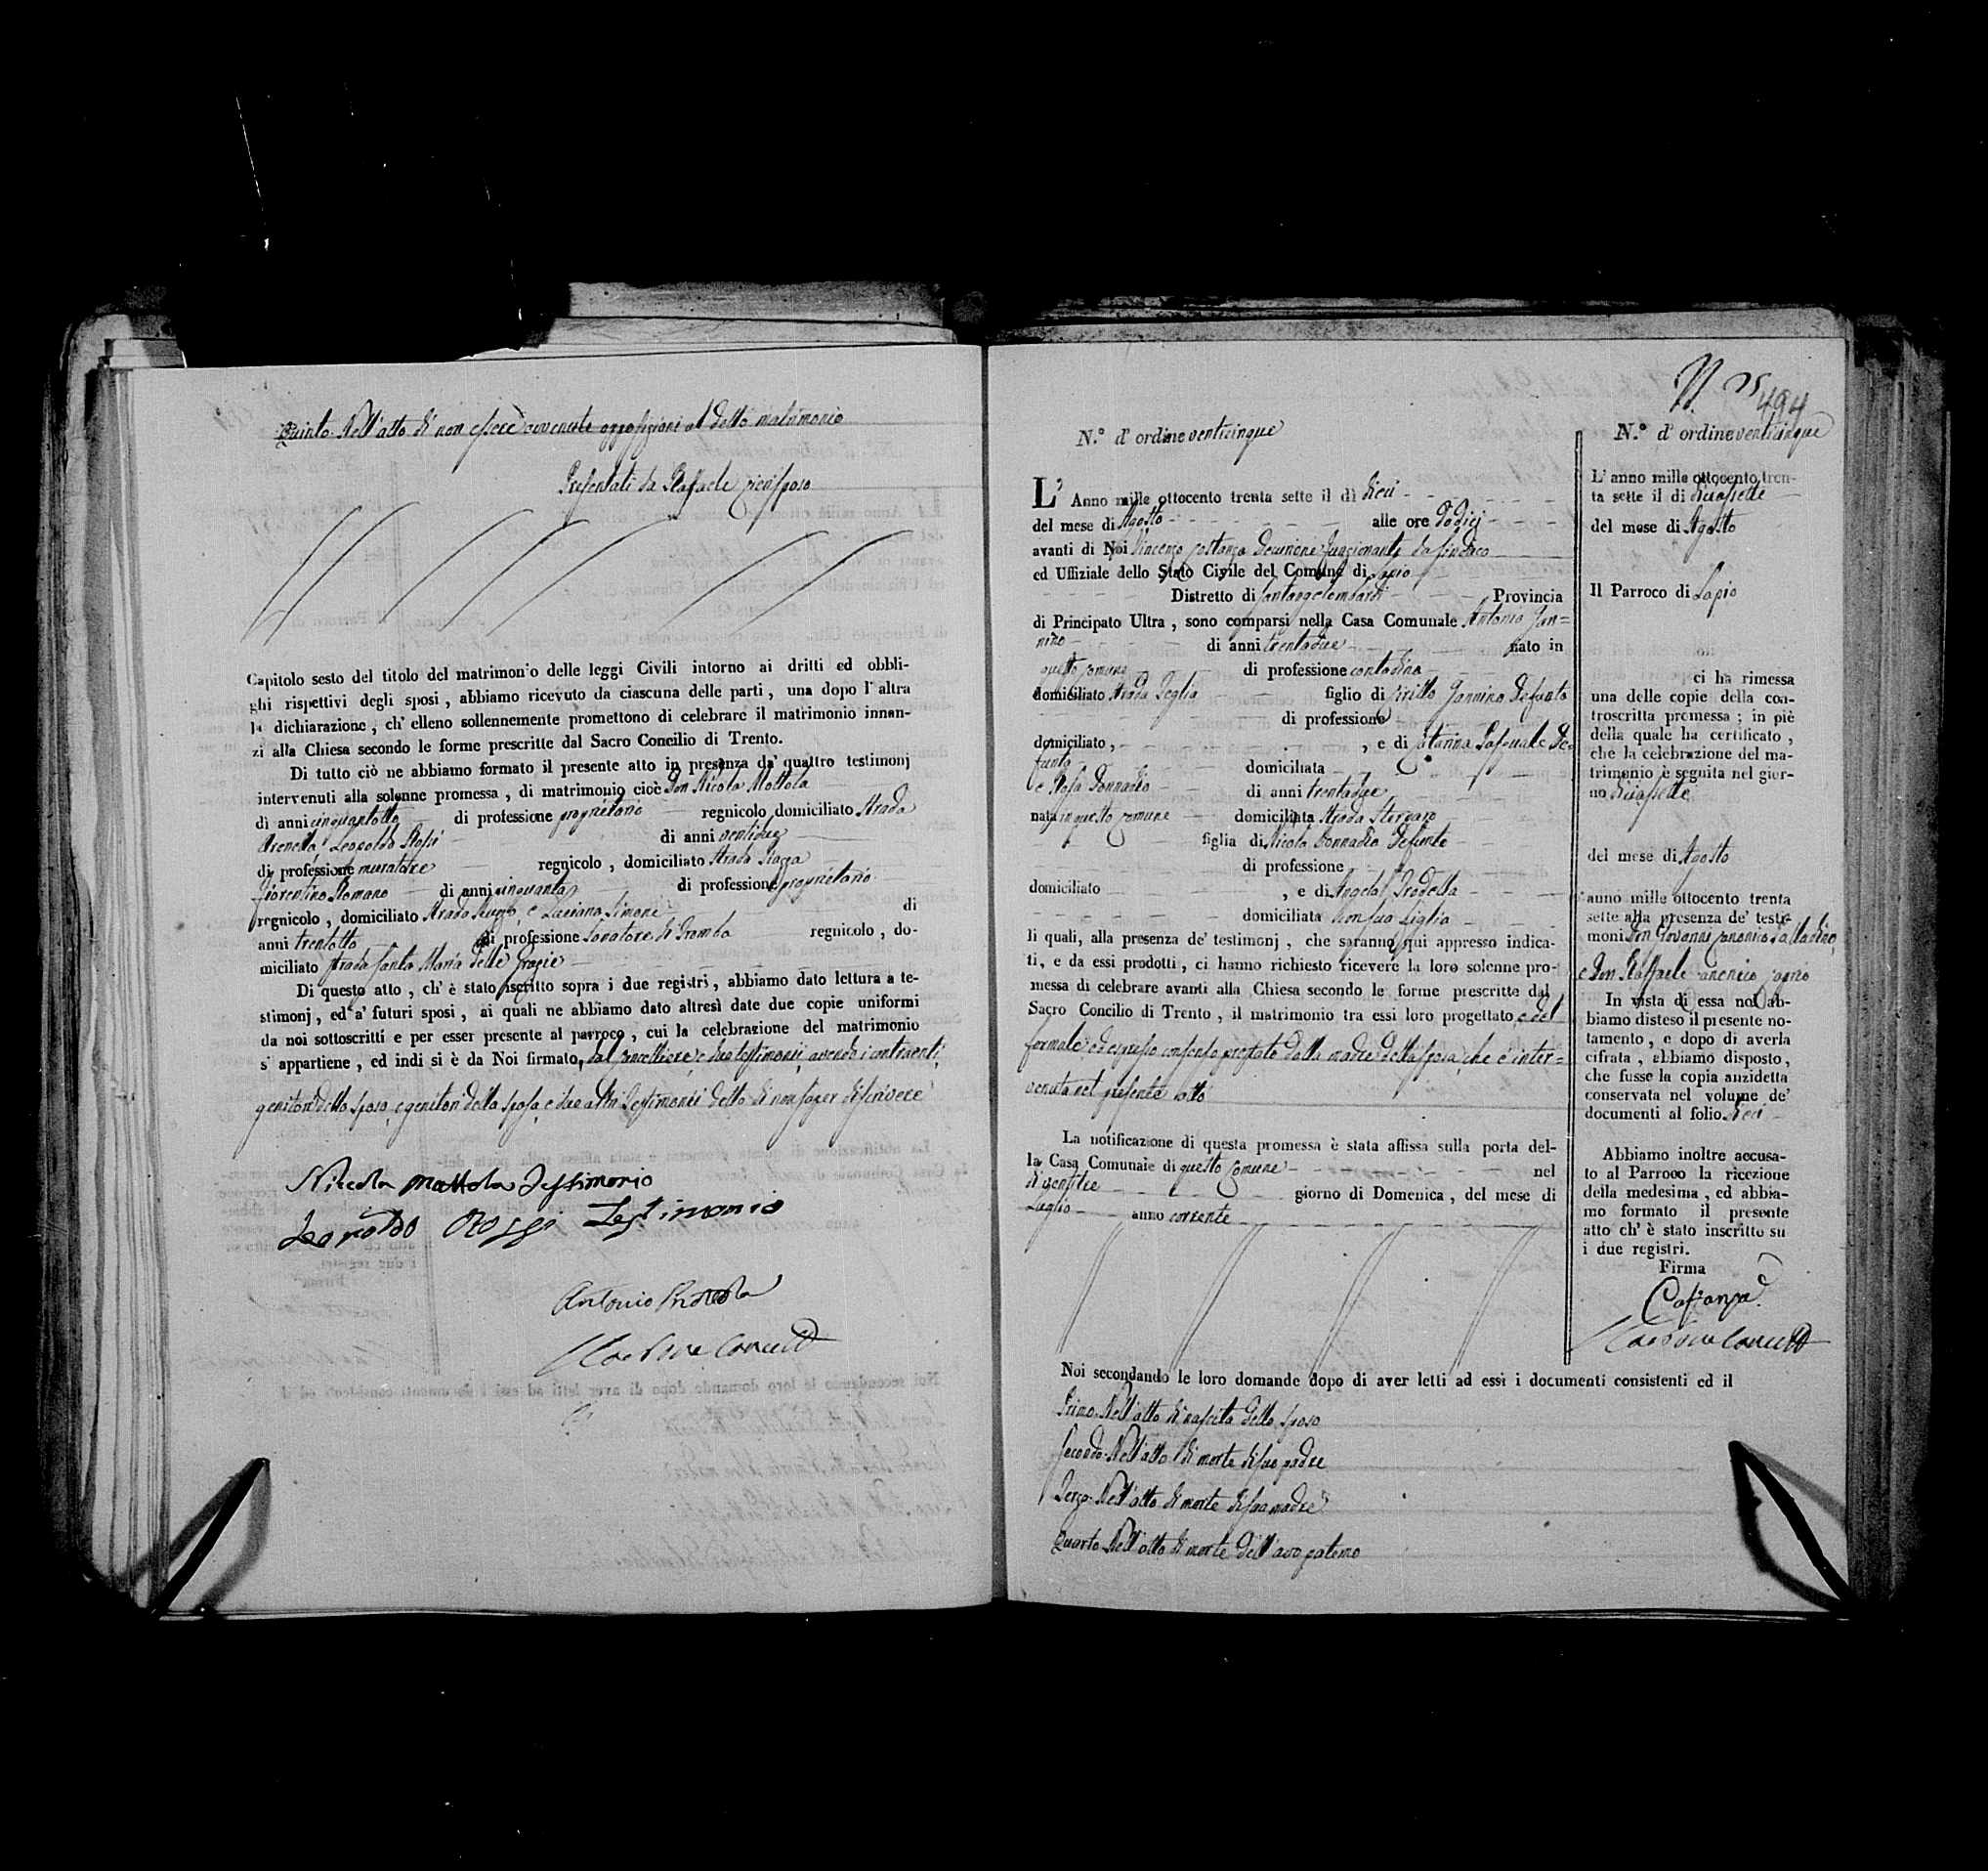 Quinto. Nell'atto di non essere avvenute opposizioni al detto matrimonio
Presentati da Raffaele sposo
Capitolo sesto del titolo del matrimonio delle leggi Civili intorno ai dritti ed obbli-
ghi rispettivi degli sposi, abbiamo ricevuto da ciascuna delle parti, una dopo l'altra
la dichiarazione, ch' elleno sollennemente promettono di celebrare il matrimonio innan-
zi alla Chiesa secondo le forme prescritte dal Sacro Concilio di Trento.
Di tutto ciò ne abbiamo formato il presente atto in presenza da' quattro testimonj
intervenuti alla solenne promessa, di matrimonio cioè Don Nicola Mottola
di anni cinquantotto di professione proprietario regnicolo domiciliato Strada
Arenella, Leopoldo Rossi di anni ventidue
di professione muratore regnicolo, domiciliato Strada Piazza
Fiorentino Romano di anni cinquanta di professione proprietario
regnicolo, domiciliato Strada e Luciano Simone di
anni trentotto di professione Sonatore di Tromba regnicolo, do-
miciliato Strada Santa Maria delle Grazie
Di questo atto, ch' è stato iscritto sopra i due registri, abbiamo dato lettura a te-
stimonj, ed a' futuri sposi, ai quali ne abbiamo dato altresì date due copie uniformi
da noi sottoscritti e per esser presente al parroco, cui la celebrazione del matrimonio
s' appartiene, ed indi si è da Noi firmato, dal Cancelliere e due testimonii, avendo i contraenti,
genitori dello sposo, e genitori della sposa, e due altri Testimonii detto di non saper di scrivere
Niccola Mottola Testimonio
Leopoldo Rossi Testimonio
Antonio
N. 25
494
N.° d' ordine venticinque
L' Anno mille ottocento trenta sette il dì dieci
del mese di Agosto alle ore dodici
avanti di Noi Vincenzo Costanza Decurione funzionante da Sindaco
ed Uffiziale dello Stato Civile del Comune di Lapio
Distretto di Santangelolombardi Provincia
di Principato Ultra, sono comparsi nella Casa Comunale Antonio Jan=
nino di anni trentadue nato in
questo comune di professione contadino
domiciliato Strada Teglia figlio di Cirillo Jannino defunto
di professione
domiciliato, , e di Catarina Pasquale De-
funta domiciliata
e Rosa Donnadio di anni trentadue
nata in questo comune domiciliata Strada
figlia di Nicola Donnadio Defunto
di professione
domiciliato , e di Angela
domiciliata con sua figlia
li quali, alla presenza de' testimonj, che saranno qui appresso indica-
ti, e da essi prodotti, ci hanno richiesto ricevere la loro solenne pro-
messa di celebrare avanti alla Chiesa secondo le forme prescritte dal
Sacro Concilio di Trento, il matrimonio tra essi loro progettato, e del
formale, ed espresso consenso prestato dalla madre della sposa, che è inter=
venuta nel presente atto
La notificazione di questa promessa è stata affissa sulla porta del-
la Casa Comunale di questo Comune nel
di ventitre giorno di Domenica, del mese di
Luglio anno corrente
Noi secondando le loro domande dopo di aver letti ad essi i documenti consistenti ed il
Primo. Nell'atto di nascita dello sposo
Secondo. Nell'atto di morte di suo padre
Terzo. Nell'atto di morte di sua madre
Quarto. Nell'atto di morte dell'avo paterno
N.° d' ordine venticinque
L' anno mille ottocento tren-
ta sette il di diciassette
del mese di Agosto
Il Parroco di Lapio
ci ha rimessa
una delle copie della con-
troscritta promessa; in piè
della quale ha certificato,
che la celebrazione del ma-
trimonio è seguita nel gior-
no diciassette
del mese di Agosto
anno mille ottocento trenta
sette alla presenza de' testi-
moni Don Giovanni canonico Palladino,
e Don Raffaele canonico
In vista di essa noi ab-
biamo disteso il presente no-
tamento, e dopo di averla
cifrata, abbiamo disposto,
che fusse la copia anzidetta
conservata nel volume de'
documenti al folio dieci
Abbiamo inoltre accusa-
to al Parroco la ricezione
della medesima, ed abbia-
mo formato il presente
atto ch' è stato inscritto su
i due registri.
Firma
Costanza